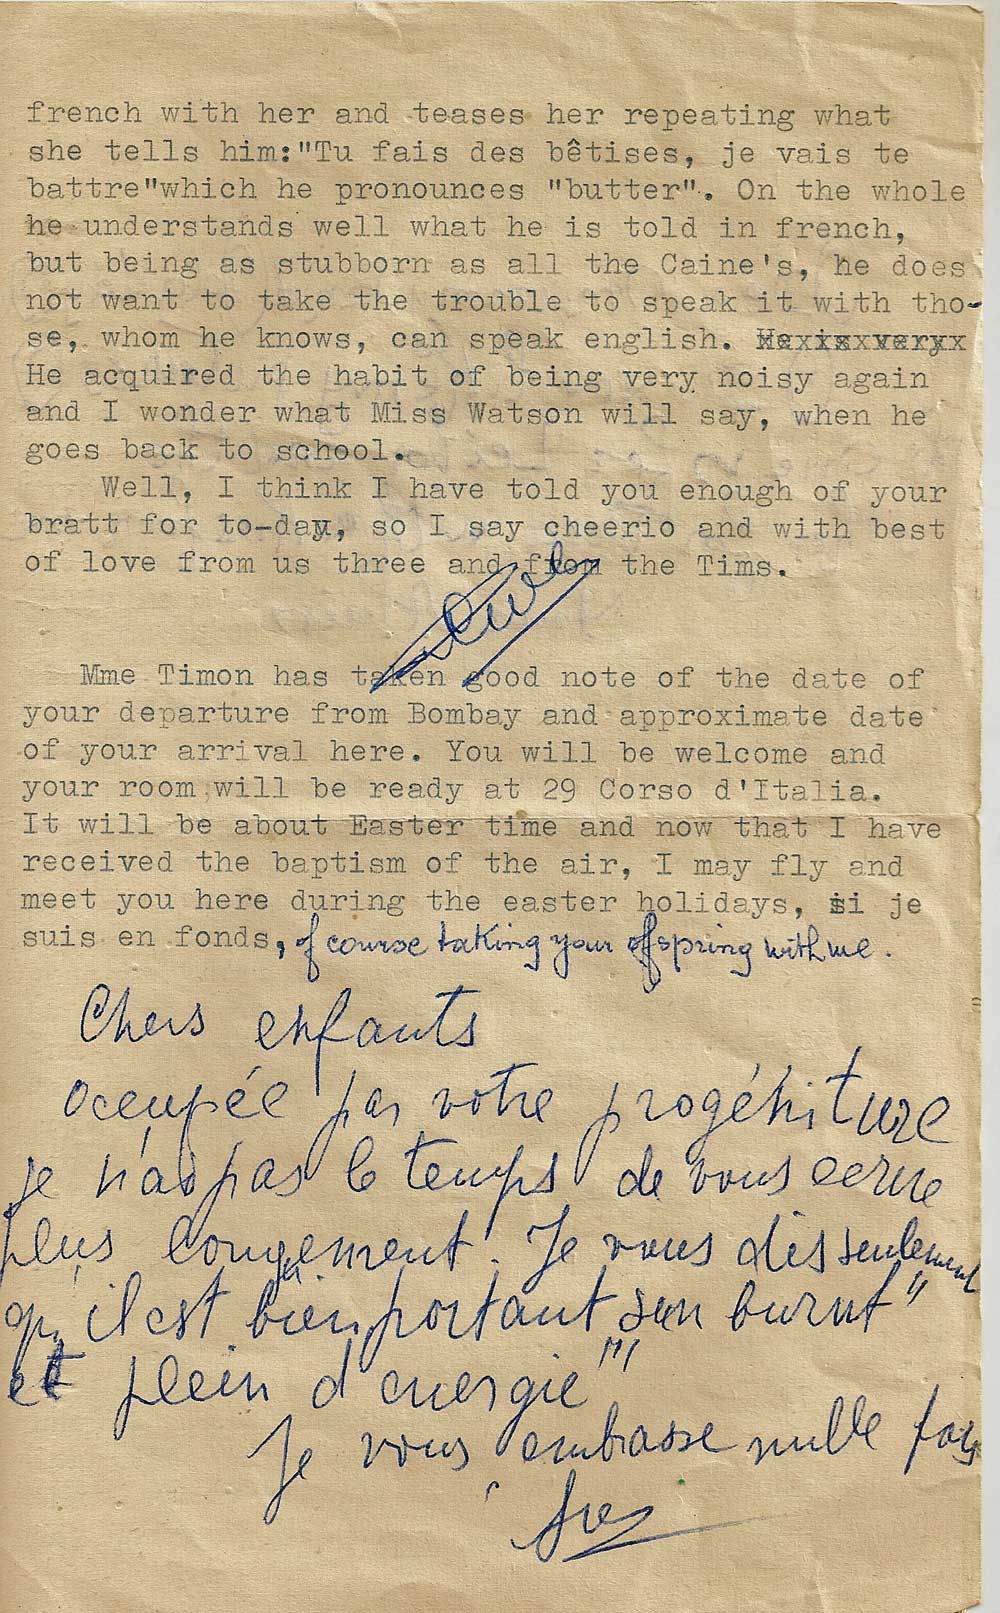 french with her and teases her repeating what
she tells him:"Tu fais des bêtises, je vais te
battre"which he pronounces "butter". On the whole
he understands well what he is told in french,
but being as stubborn as all the Caine's, he does
not want to take the trouble to speak it with tho-
se, whom he knows, can speak english.
He acquired the habit of being very noisy again
and I wonder what Miss Watson will say, when he
goes back to school.
Well, I think I have told you enough of your
bratt for to-day, so I say cheerio and with best
of love from us three and from the Tims.
Mme Timon has taken good note of the date of
your departure from Bombay and approximate date
of your arrival here. You will be welcome and
your room will be ready at 29 Corso d'Italia.
It will be about Easter time and now that I have
received the baptism of the air, I may fly and
meet you here during the easter holidays, si je
suis en fonds, of course taking your offspring with me.
Chers enfants
occupée par votre progéniture
je n'ai pas le temps de vous ecrire
plus longement. Je vous dis seulement
qu'il est bien portant "sun burnt"
et plein d'energie"!!!
Je vous embrasse mille fois